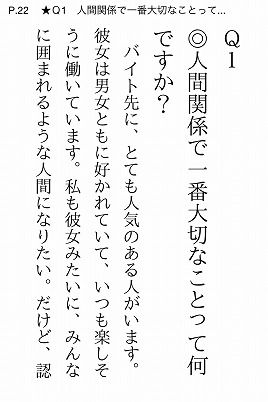 P.22　★Q1　人間関係で一番大切なことって...
Q1
◎人間関係で一番大切なことって何
ですか？
　バイト先に、とても人気のある人がいます。
彼女は男女ともに好かれていて、いつも楽しそ
うに働いています。私も彼女みたいに、みんな
に囲まれるような人間になりたい。だけど、認